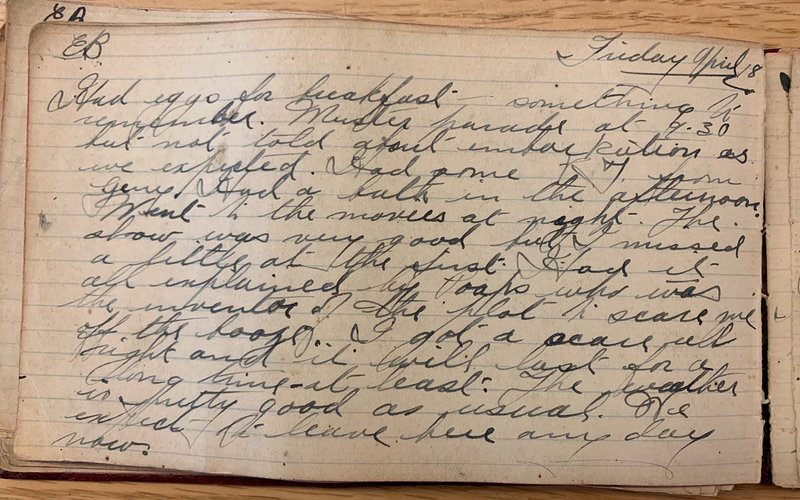 EB
EB Friday April 18
Had eggs for breakfast - something to
remember. Muster parade at 9.30
but not told about embarkation as
we expected. Had some from
Gerry. Had a bath in the afternoon.
Went to the movies at night. The
show was very good but I missed
a little at the first. Had it
all explained by Toaps who was
the inventor of the plot to scare me
off the booze. I got a scare all
right and it will last for a
long time - at least. The weather
is pretty good as usual. We
expect to leave here any day
now.